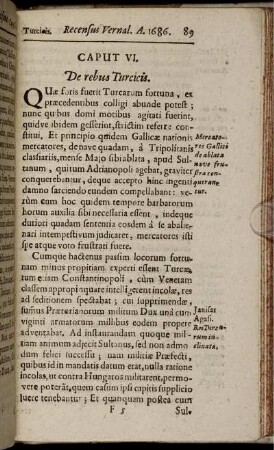 Turcicis. Recensus Vernal. A. 1686. 89
CAPUT VI.
De rebus Turcicis.
QUæ foris fuerit Turcarum fortuna, ex
præcedentibus colligi abunde potest;
nunc quibus domi motibus agitati fuerint,
quidvè ibidem gesserint, strictim referre con-
stitui. Et principio quidem Gallicæ nationis
mercatores, de nave quadam, à Tripolitanis
classiariis, mense Majo sibi ablata, apud Sul-
tanum, quitum Adrianopoli agebat, graviter
conquerebantur, deque accepto hinc ingenti
damno sarciendo eundem compellabant: ve-
rùm cum hoc quidem tempore barbarorum
horum auxilia sibi necessaria essent, indeque
duriori quadam sententia eosdem à se abalie-
nari intempestivum judicaret, mercatores isti
spe atque voto frustrati fuere.
Mercato-
res Gallici
de ablata
nave fru-
stra con-
querun-
tur.
Cumque hactenus passim locorum fortu-
nam minus propitiam experti essent Turcæ,
rumor etiam Constantinopoli, cùm Venetam
classem appropinquate intelligerent incolæ, res
ad seditionem spectabat; cui supprimendæ,
suisus Prætorianorum militum Dux unà cum
viginti armatorum millibus eodem propere
adventabat. Ad instaurandum quoque mili-
tiam animam adjecit Sultanus, sed non ad mo-
dum felici successu; nam militiæ Præfecti,
quibus id in mandatis datum erat, nulla ratione
incolas, ut contra Hungaros militarent, permo-
vere poterāt, quem casum ipsi capitis supplicio
luere tenebantur; Et quanquam postea cum
Janisar.
Agasi.
Res Turca-
rum in-
clinatæ.
F 5 Sul-